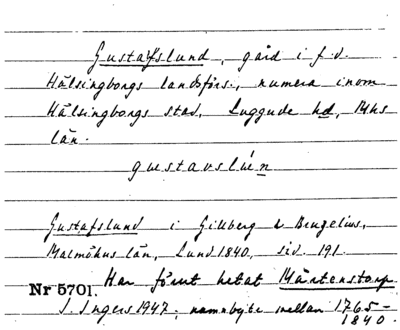 Gustafslund, gård i f.d.
Hälsingborgs landsförs., numera inom
Hälsingborgs stad, Luggude hd, Mhs
län.
gustavslún
Gustafslund i Gillberg & Bengelius,
Malmöhus län, Lund 1840, sid. 191.
Har förut hetat Mårtenstorp
Nr 5701.
I. Ingers 1947; namnbyte mellan 1765-
1840.